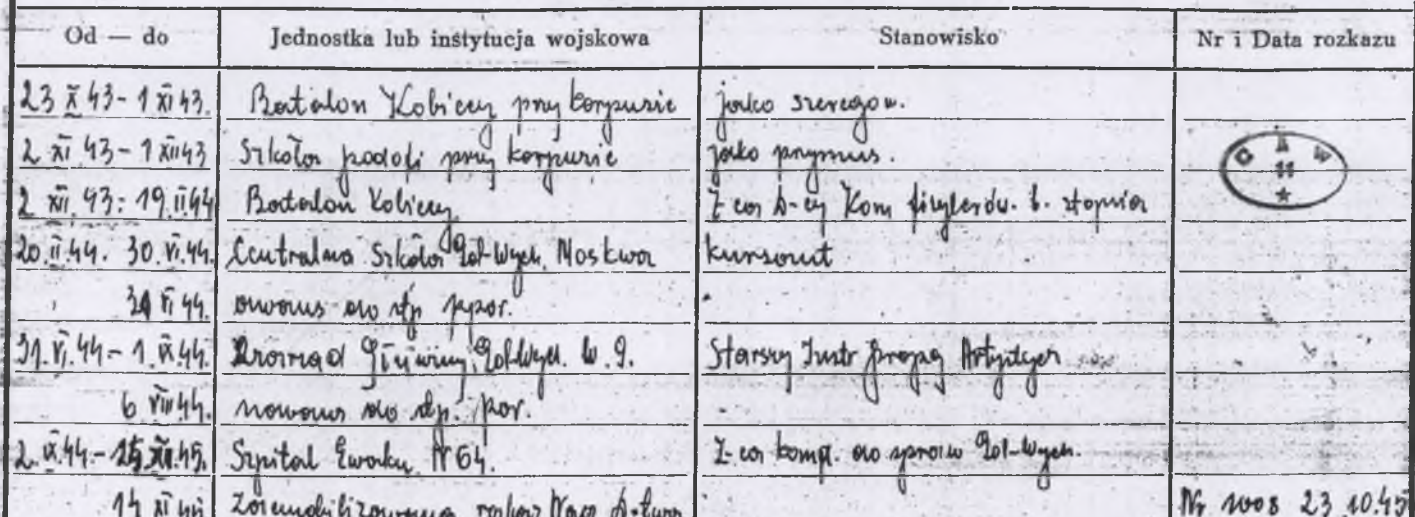 Od — do Jednostka lub instytucja wojskowa Stanowisko Nr i Data rozkazu
23 X 43 - 1 XI 43. Batalon Kobiecy przy korpusie jako szeregow.
2 XI 43 - 1 XII 43 Szkoła podofi przy korpusie jako prymus.
2 XII 43: 19.II 44 Batalon Kobiecy Z-ca D-cy Kom fizylerów. b. stopnia
20 II 44. 30 VI.44. Centralna Szkoła Pol-Wych. Moskwa kursant
VI 44. awans do stp ppor.
31.VI.44 - 1.IX.44. Główny Pol-Wych. W.P. Starszy Instr propag Artystycz
6 VIII 44. awans do stp. por.
2.IX.44.- 45. Szpital Ewaku. N 64. Z-ca kompl. do spraw Pol-Wych.
14 XI 45 Zdemobilizowana rozkaz Nacz D-twa Nr 1008 23.10.45